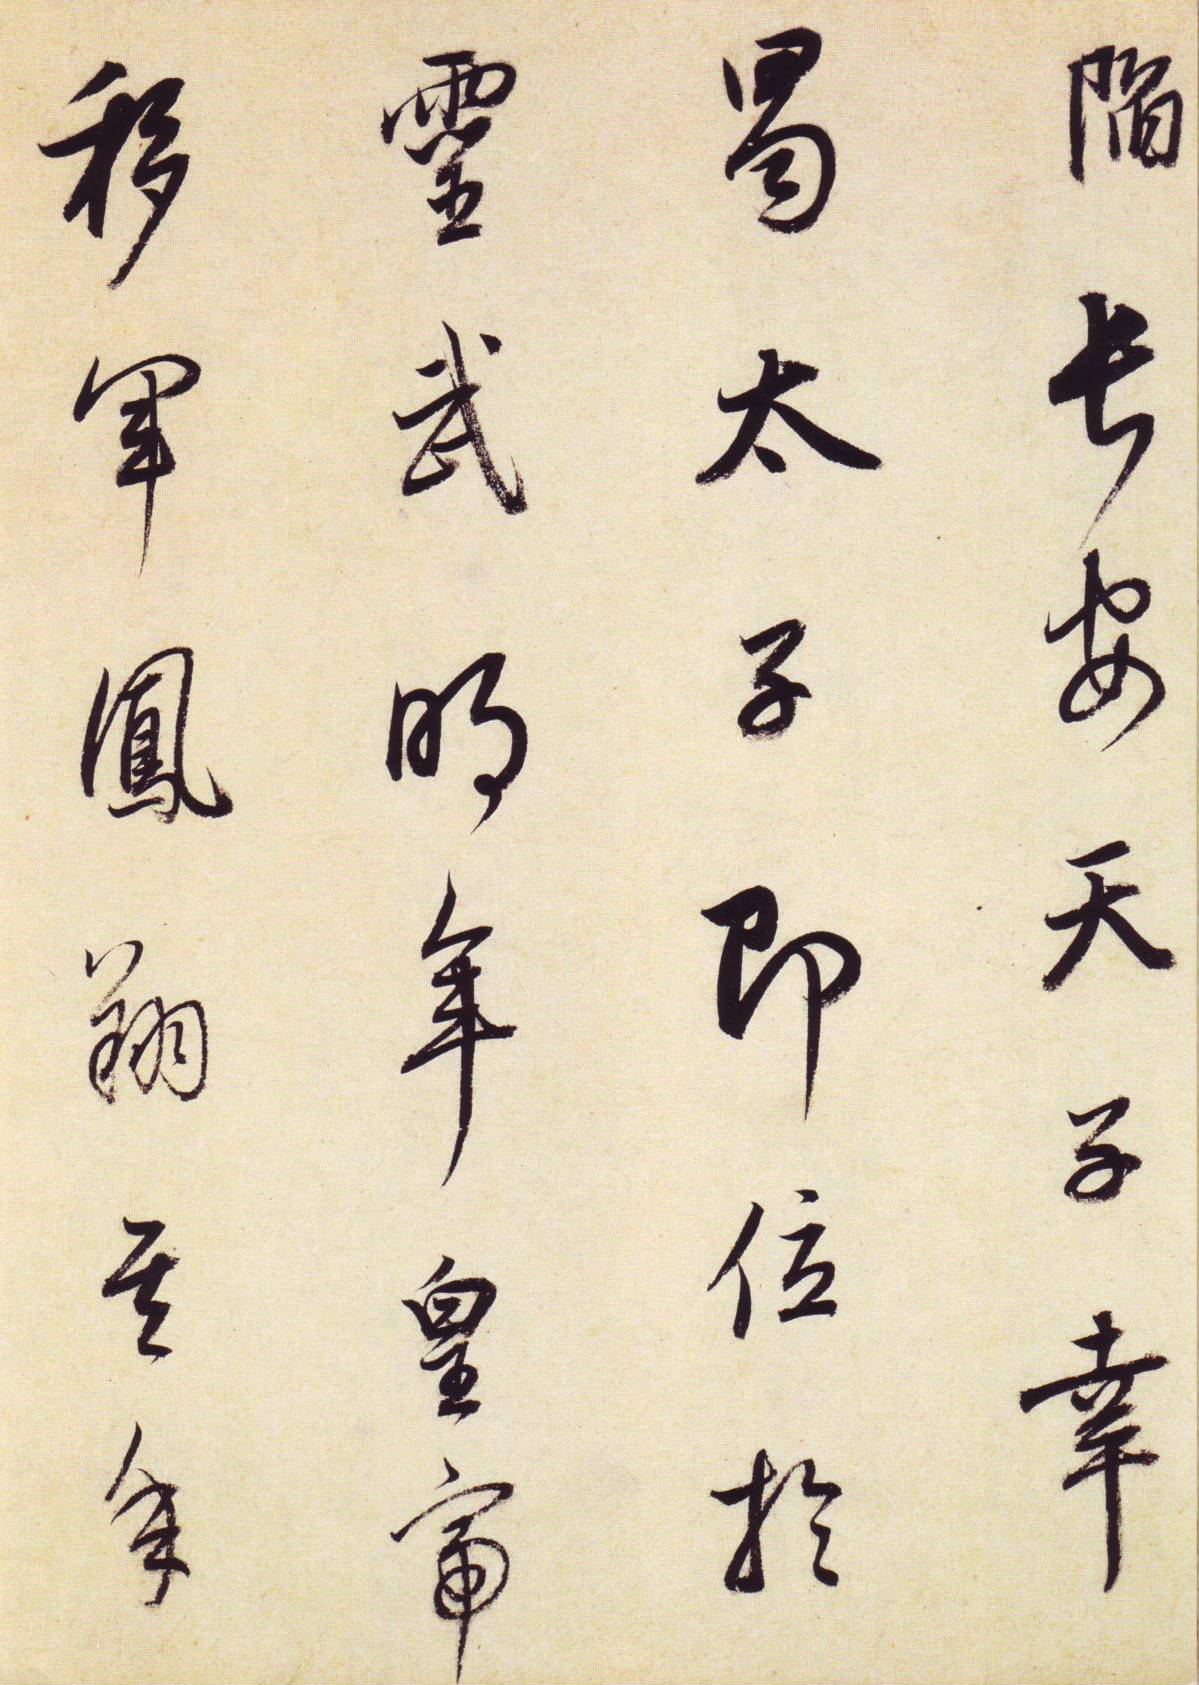 陷長安天子幸
蜀太子即位於
靈武明年皇帝
移軍鳳翔其年